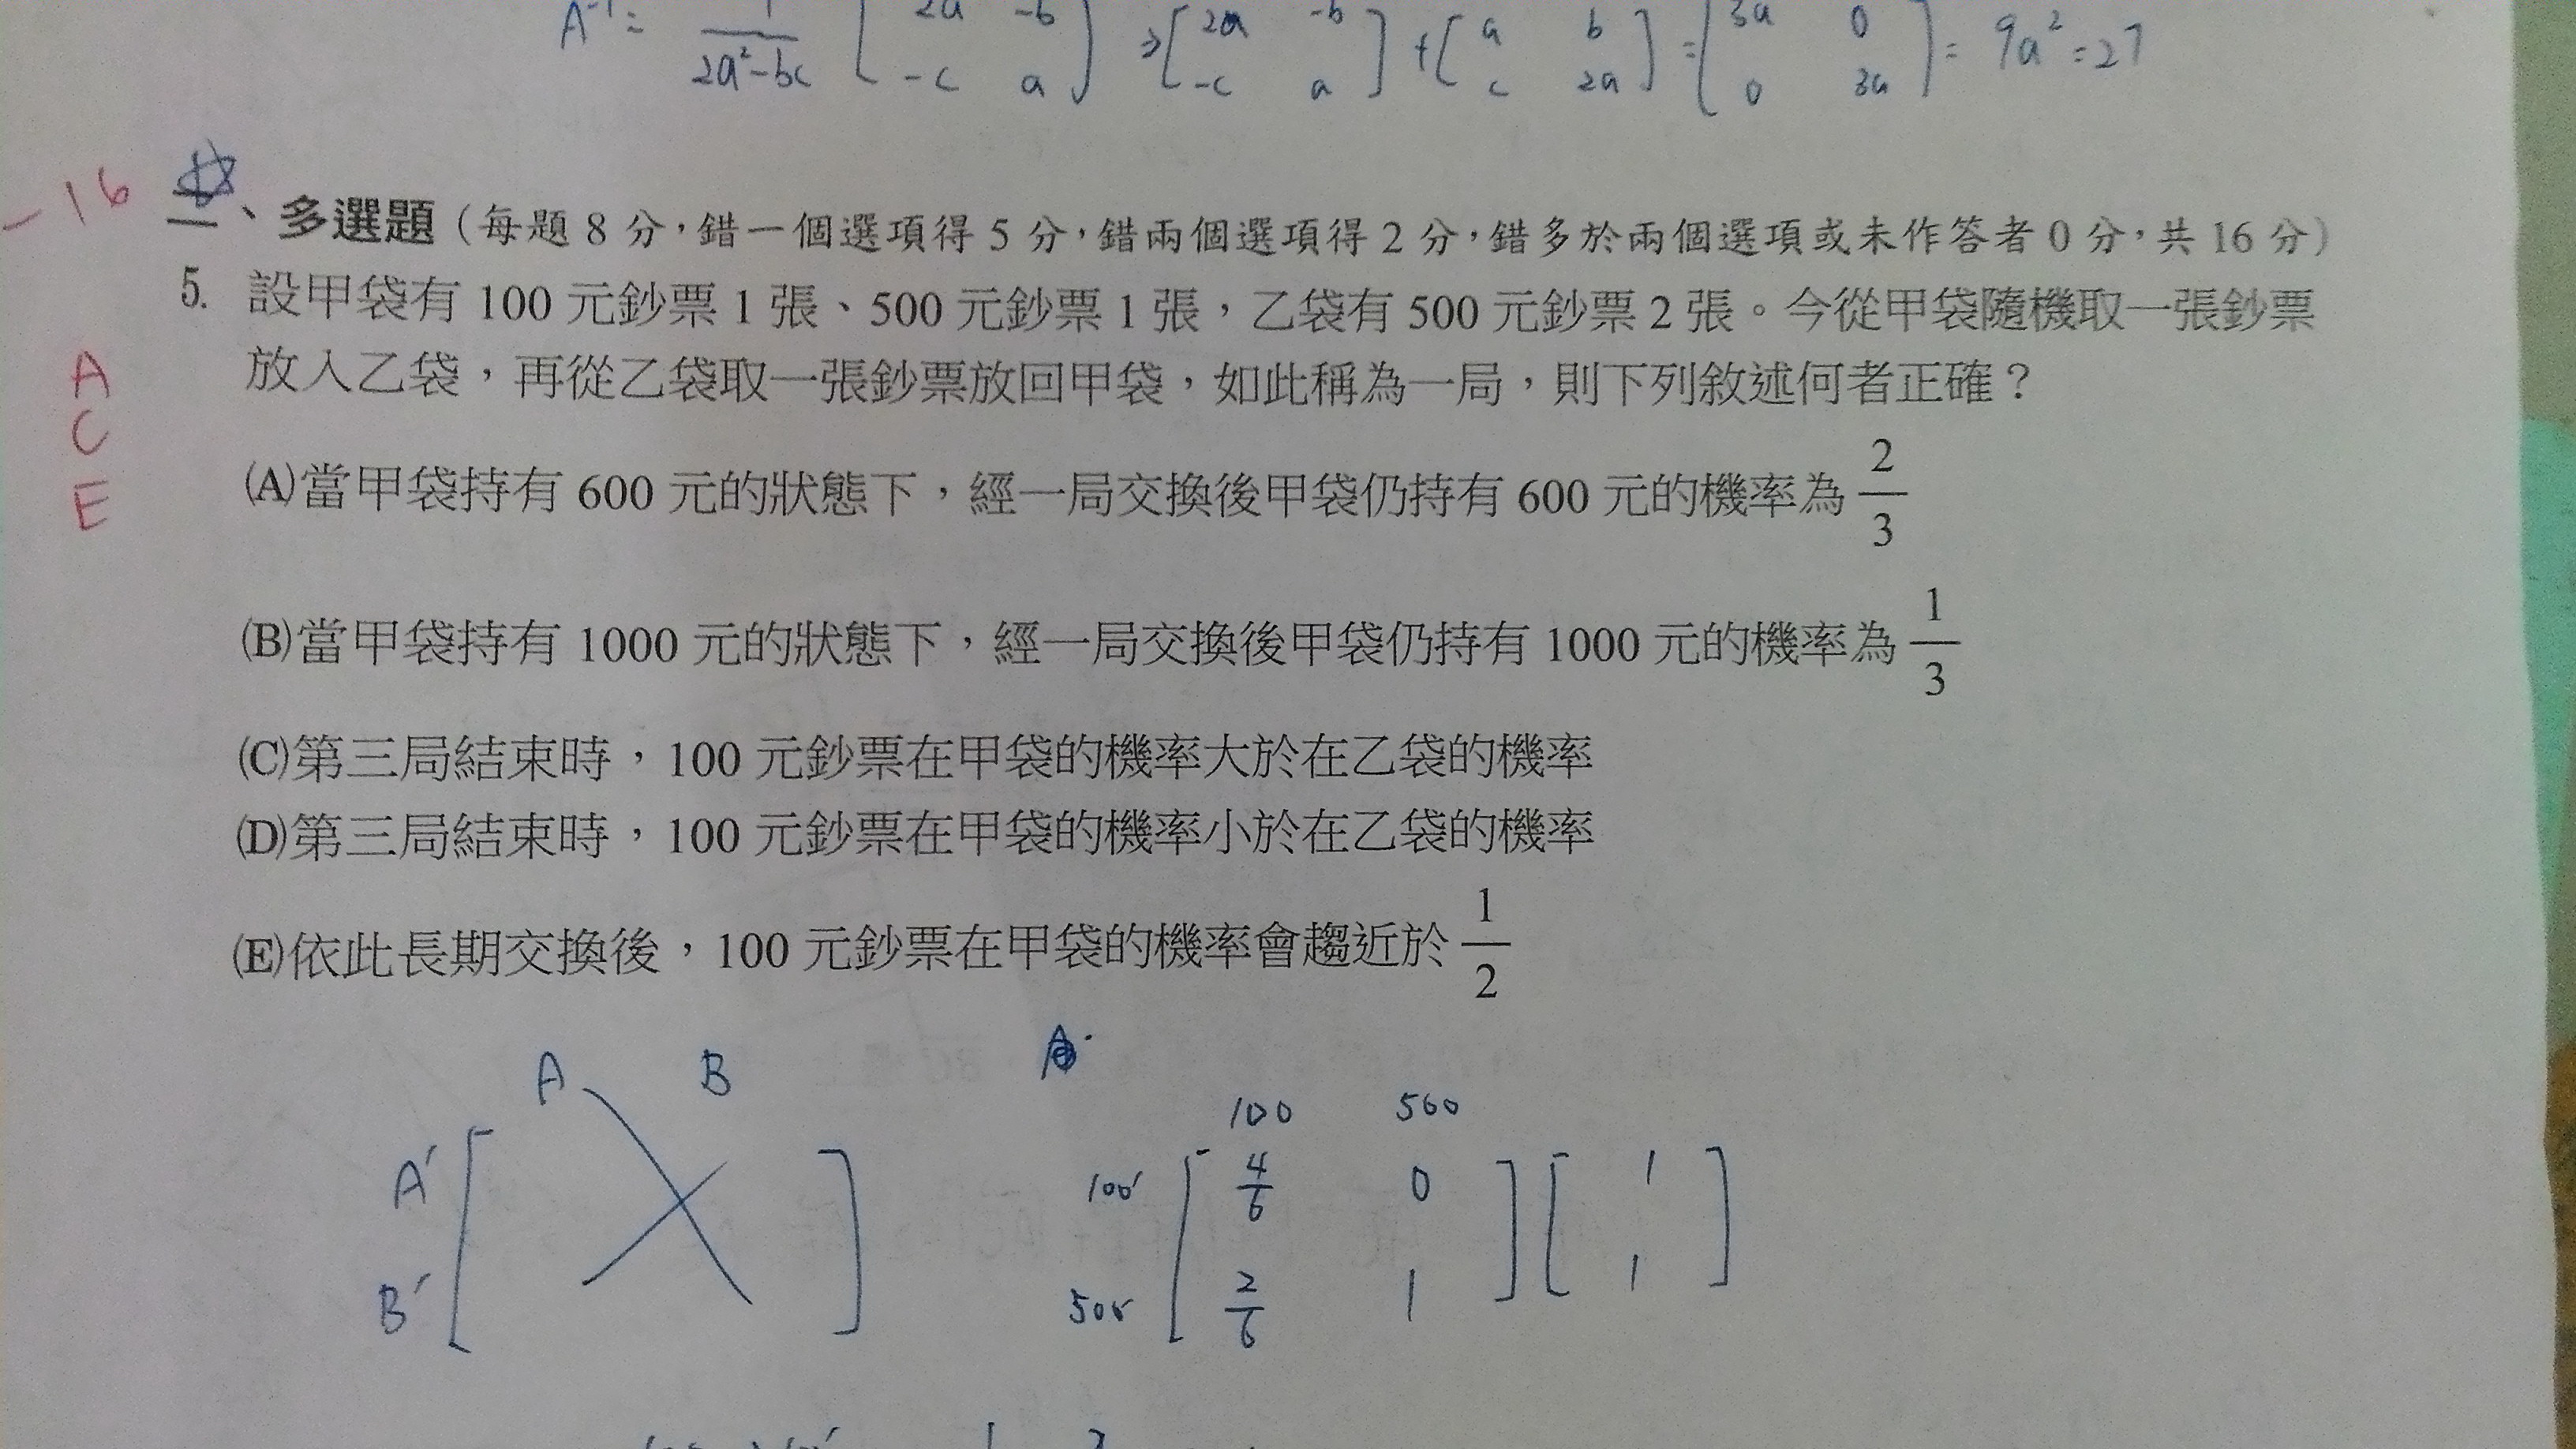 A⁻¹ = 1/(2a²-bc) [2a -b -c a] ⇒ [2a -b -c a] + [a b c 2a] = [3a 0 0 3a] = 9a² = 27
-16
二、多選題(每題 8 分，錯一個選項得 5 分，錯兩個選項得 2 分，錯多於兩個選項或未作答者 0 分，共 16 分)
5. 設甲袋有 100 元鈔票 1 張、500 元鈔票 1 張，乙袋有 500 元鈔票 2 張。今從甲袋隨機取一張鈔票
放入乙袋，再從乙袋取一張鈔票放回甲袋，如此稱為一局，則下列敘述何者正確？
A
C
E
(A)當甲袋持有 600 元的狀態下，經一局交換後甲袋仍持有 600 元的機率為 2/3
(B)當甲袋持有 1000 元的狀態下，經一局交換後甲袋仍持有 1000 元的機率為 1/3
(C)第三局結束時，100 元鈔票在甲袋的機率大於在乙袋的機率
(D)第三局結束時，100 元鈔票在甲袋的機率小於在乙袋的機率
(E)依此長期交換後，100 元鈔票在甲袋的機率會趨近於 1/2
A B
A'
B'
100 500
100' [4/6 0] [1]
500' [2/6 1] [1]